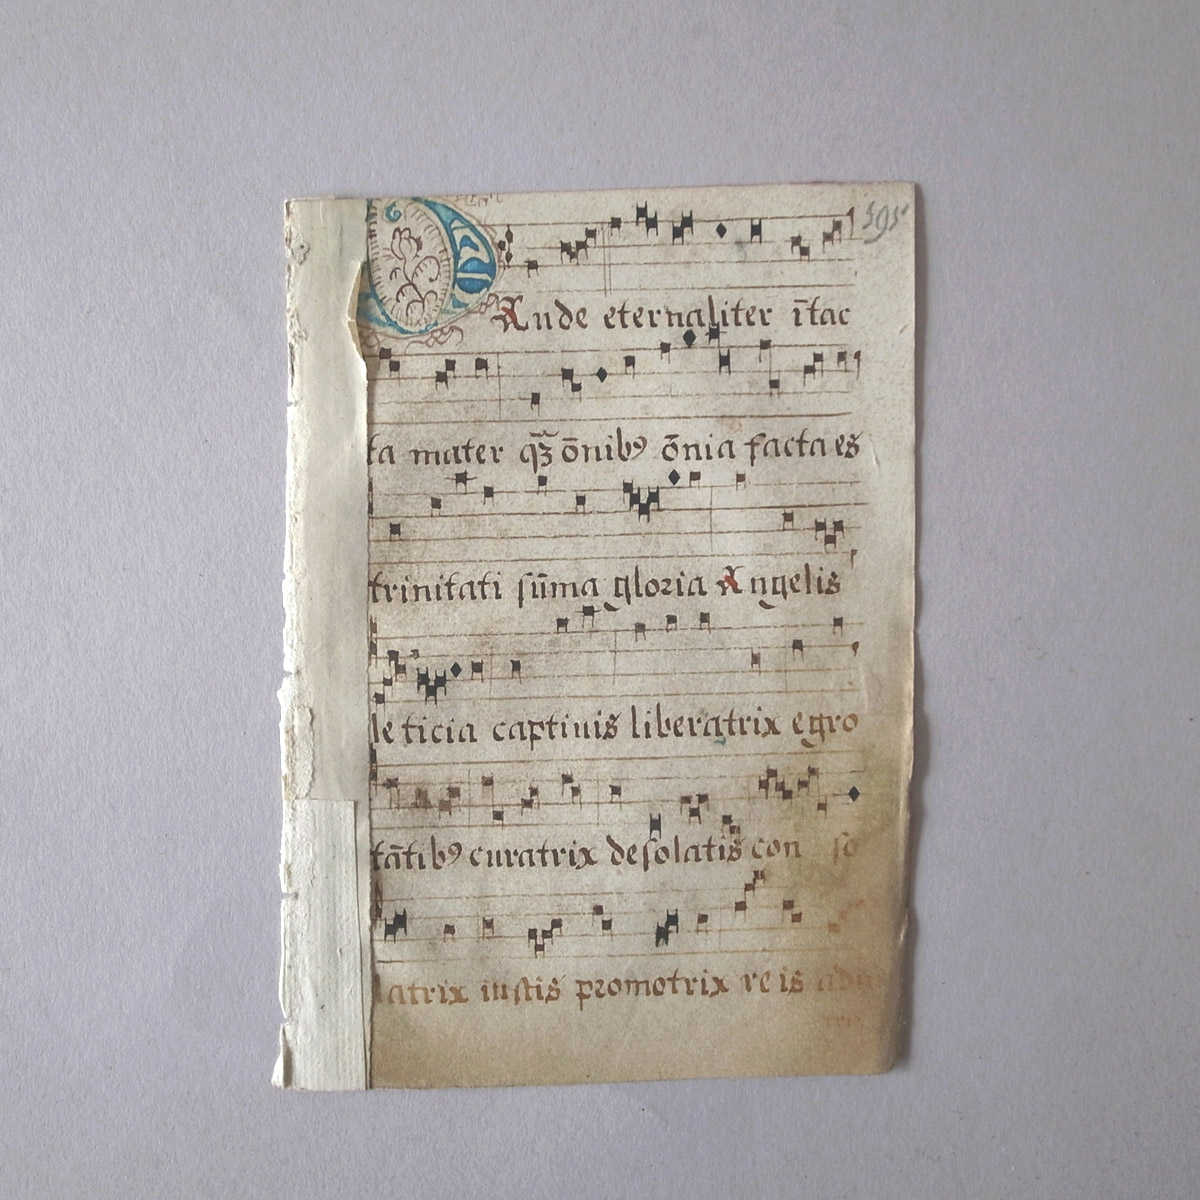 595
GAude eternaliter ītac
ta mater qꝫ̄ ōnibꝰ ōnia facta es
trinitati sūma gloria Angelis
leticia captiuis liberatrix egro
tātibꝰ curatrix desolatis con so
latrix iustis promotrix reis adiu